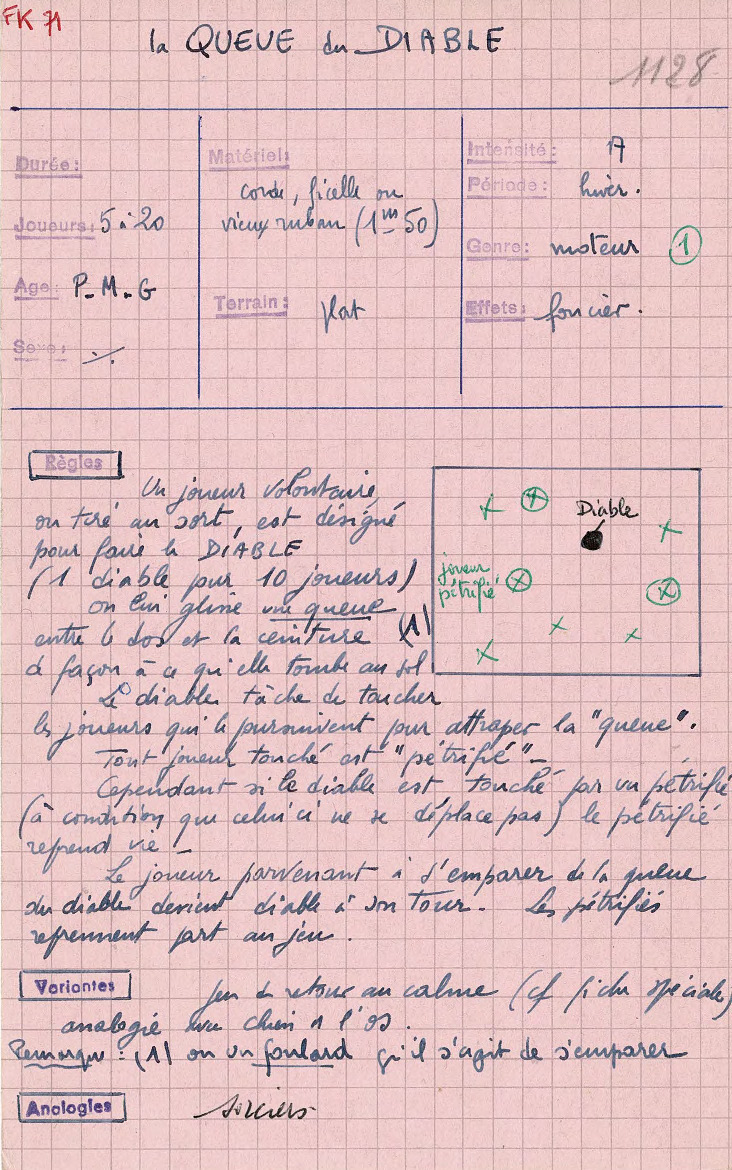 FK 71
la QUEUE du DIABLE
1128
Durée:
Joueurs: 5 à 20
Age: P_ M_ G
Sexe: ./.
Matériel:
corde, ficelle ou
vieux ruban (1m50)
Terrain: plat
Intensité: 17
Période: hiver.
Genre: moteur 1
Effets: foncier.
Règles
Un joueur volontaire,
ou tiré au sort, est désigné
pour faire le DIABLE
(1 diable pour 10 joueurs)
on lui glisse une queue
entre le dos et la ceinture (1)
de façon à ce qu'elle tombe au sol
Le diable tâche de toucher
les joueurs qui le poursuivent pour attraper la "queue".
Tout joueur touché est "pétrifié"_
Cependant si le diable est touché par un pétrifié
(à condition que celui ci ne se déplace pas) le pétrifié
reprend vie _
Le joueur parvenant à s'emparer de la queue
du diable devient diable à son tour. Les pétrifiés
reprennent part au jeu.
Diable
joueur
pétrifié
Variantes
jeu de retour au calme (cf fiche spéciale)
analogie avec chien à l'os.
Remarque: (1) ou un foulard qu'il s'agit de s'emparer
Analogies
sorciers